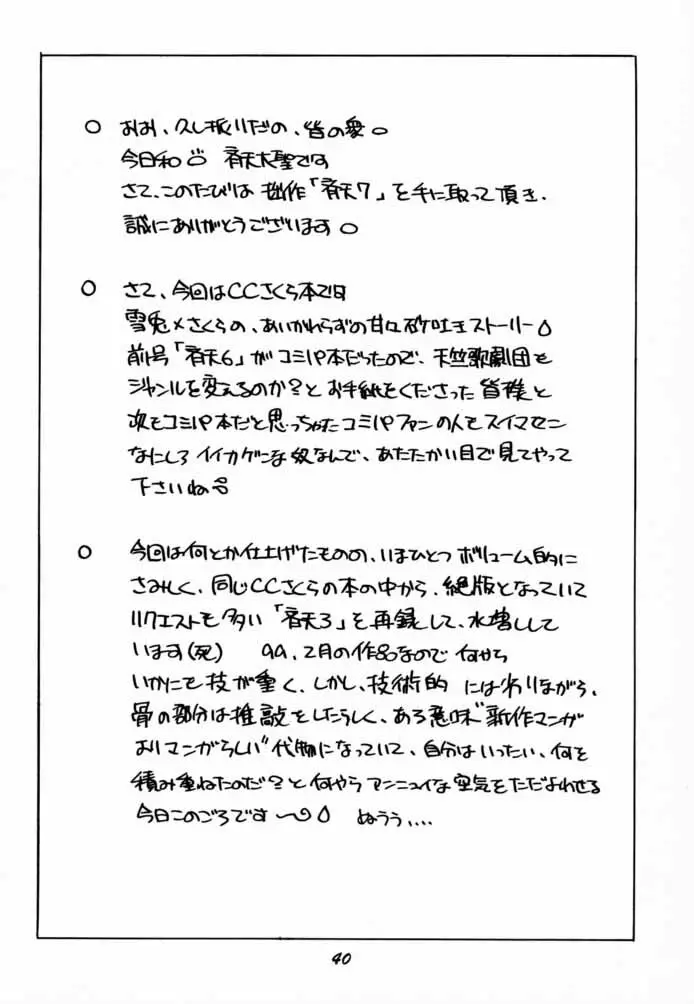 ○ おお、久し振りだの、皆の衆。
今日和 斉天大聖です
さて、このたびは 拙作「斉天7」を手に取って頂き、
誠にありがとうございます。
○ さて、今回はCCさくら本です
雪兎×さくらの、あいかわらずの甘々砂吐きストーリー
前号「斉天6」がコミパ本だったので、天竺歌劇団も
ジャンルを変えるのか?とお手紙をくださった皆様と
次もコミパ本だと思っちゃたコミパファンの人もスイマセン
なにしろ イイカゲンな奴なんで、あたたかい目で見てやって
下さいね
○ 今回は何とか仕上げたものの、いまひとつ ボリューム的に
さみしく、同じCCさくらの本の中から、絶版となっていて
リクエストも多い「斉天3」を再録して、水増しして
います(死) 99、2月の作品なので 何やら
いかにも技が重く、しかし、技術的 には劣りながら、
骨の部分は推敲をしたらしく、ある意味"新作マンガ
よりマンガらしい"代物になっていて、自分はいったい、何を
積み重ねたのだ?と何やら アンニュイな空気をただよわせる
今日このごろです ぬうう....
40